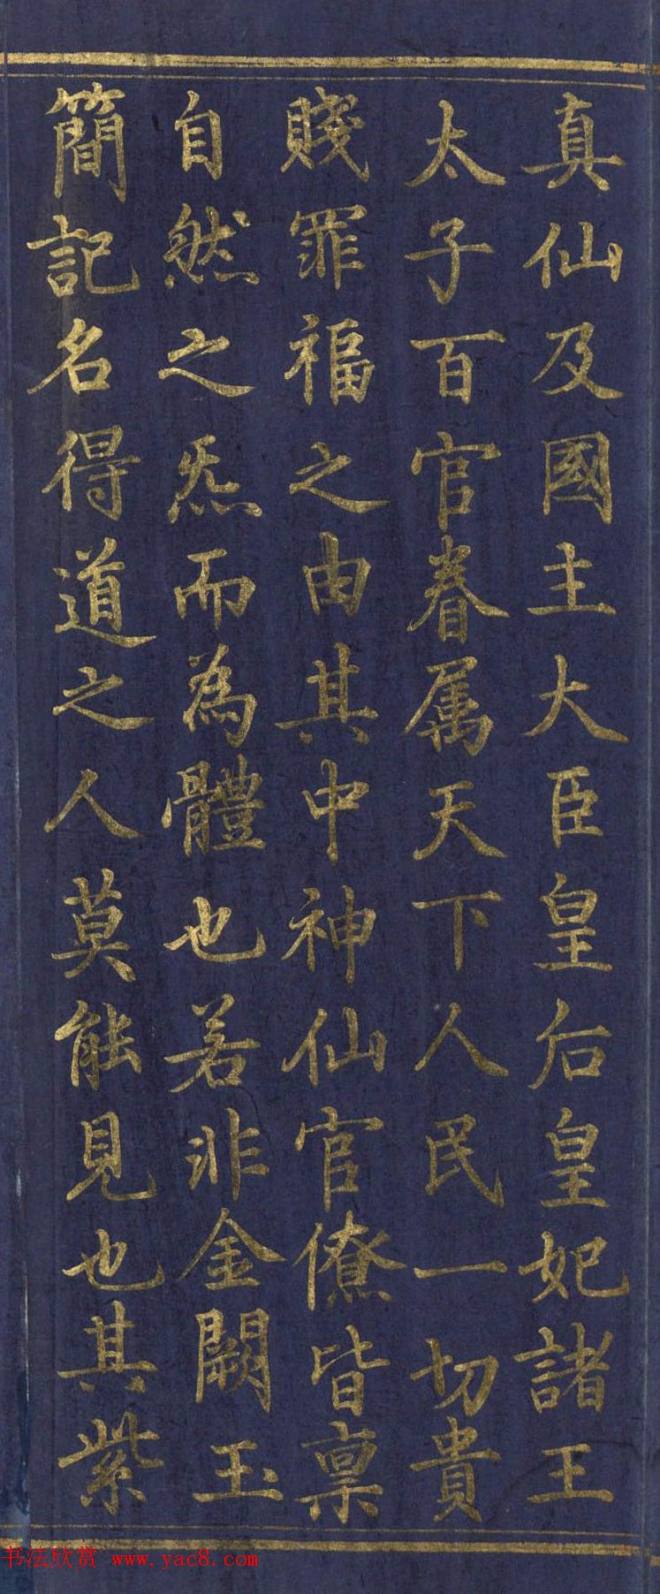 真仙及國主大臣皇后皇妃諸王
太子百官眷属天下人民一切貴
賤罪福之由其中神仙官僚皆稟
自然之炁而為體也若非金闕玉
簡記名得道之人莫能見也其紫
书法欣赏 www.yac8.com